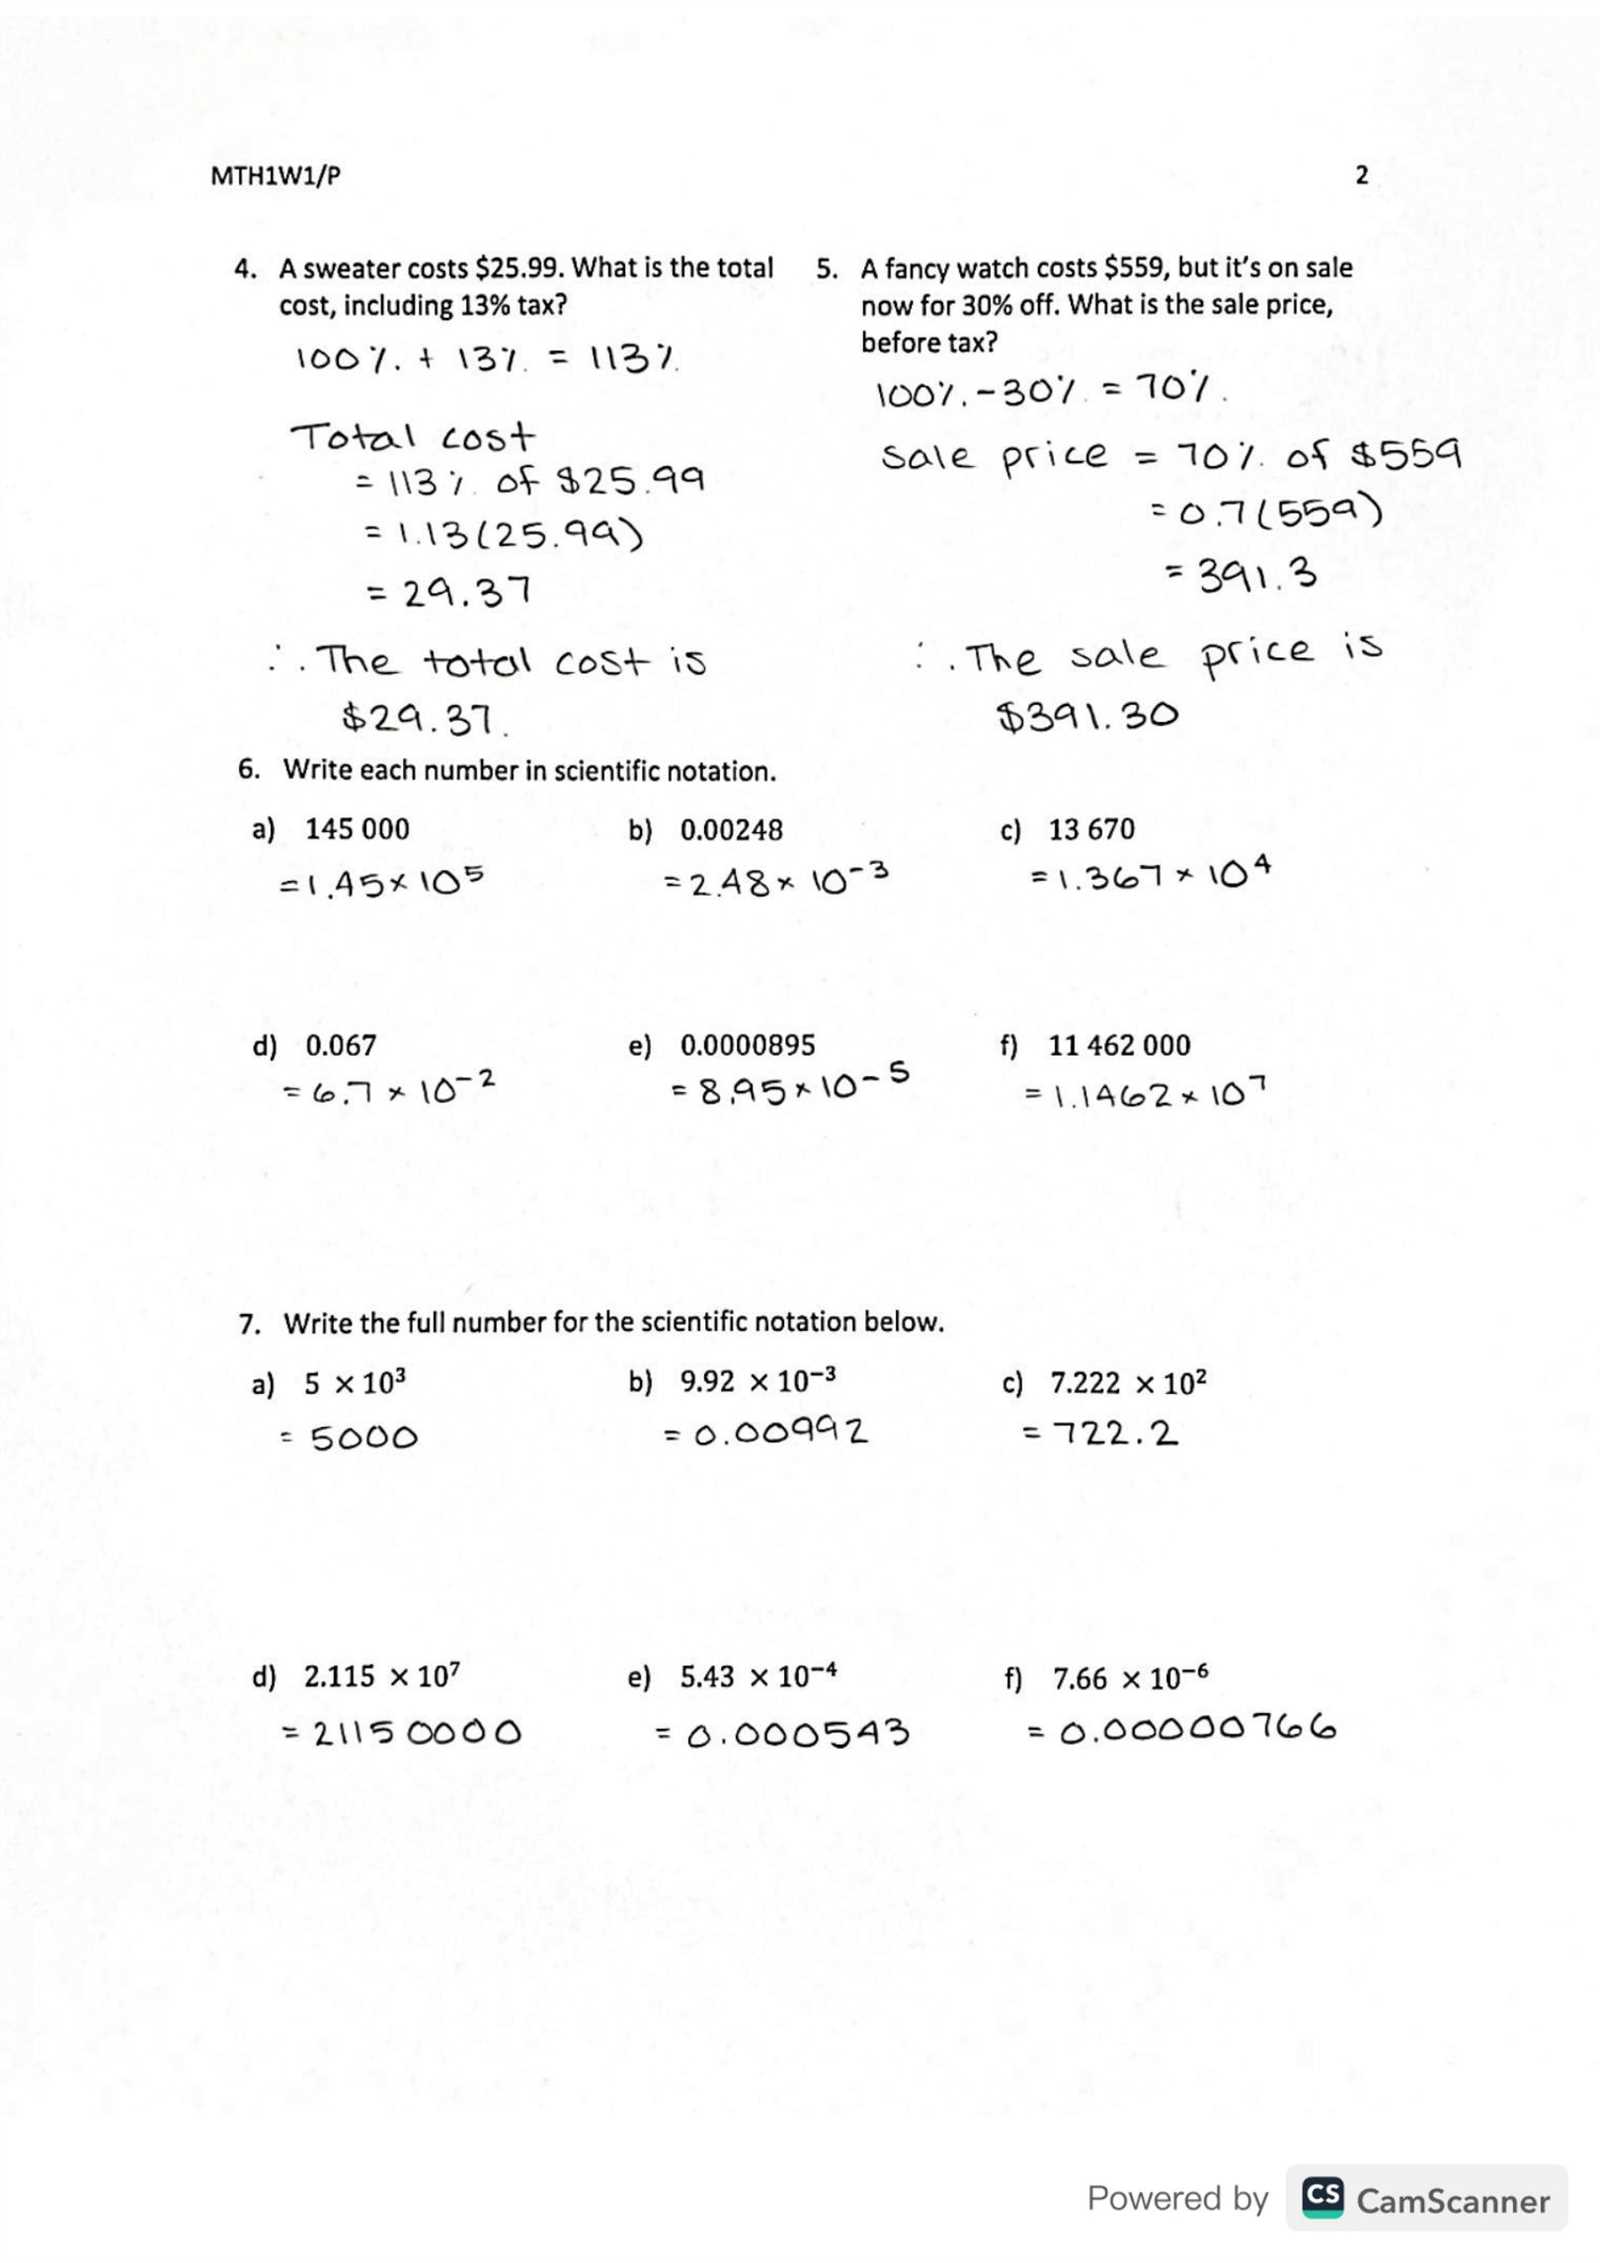 MTH1W1/P 2
4. A sweater costs $25.99. What is the total
cost, including 13% tax?
100% + 13% = 113%
Total cost
= 113% of $25.99
= 1.13(25.99)
= 29.37
∴ The total cost is
$29.37.
5. A fancy watch costs $559, but it's on sale
now for 30% off. What is the sale price,
before tax?
100% - 30% = 70%
Sale price = 70% of $559
= 0.7(559)
= 391.3
∴ The sale price is
$391.30
6. Write each number in scientific notation.
a) 145 000 b) 0.00248 c) 13 670
= 1.45 × 10⁵ = 2.48 × 10⁻³ = 1.367 × 10⁴
d) 0.067 e) 0.0000895 f) 11 462 000
= 6.7 × 10⁻² = 8.95 × 10⁻⁵ = 1.1462 × 10⁷
7. Write the full number for the scientific notation below.
a) 5 × 10³ b) 9.92 × 10⁻³ c) 7.222 × 10²
= 5000 = 0.00992 = 722.2
d) 2.115 × 10⁷ e) 5.43 × 10⁻⁴ f) 7.66 × 10⁻⁶
= 21150000 = 0.000543 = 0.00000766
Powered by CS CamScanner